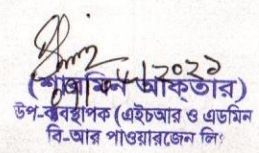 (শারমিন আক্তার)
উপ-ব্যবস্থাপক (এইচআর ও এডমিন
বি-আর পাওয়ারজেন লিঃ